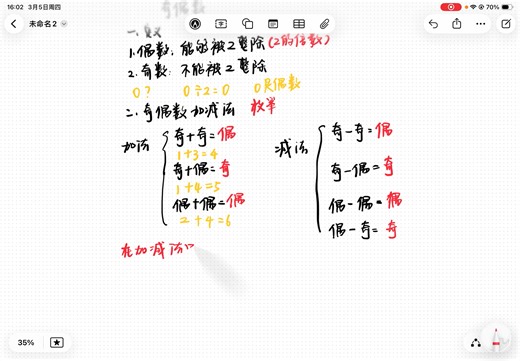 16:02 3月5日周四
70%
未命名2
奇偶数
一.定义
1.偶数:能够被2整除(2的倍数)
2.奇数:不能被2整除
0? 0÷2=0 0是偶数
二.奇偶数加减法 枚举
加法
奇+奇=偶
1+3=4
奇+偶=奇
1+4=5
偶+偶=偶
2+4=6
减法
奇-奇=偶
奇-偶=奇
偶-偶=偶
偶-奇=奇
在加减法
35%